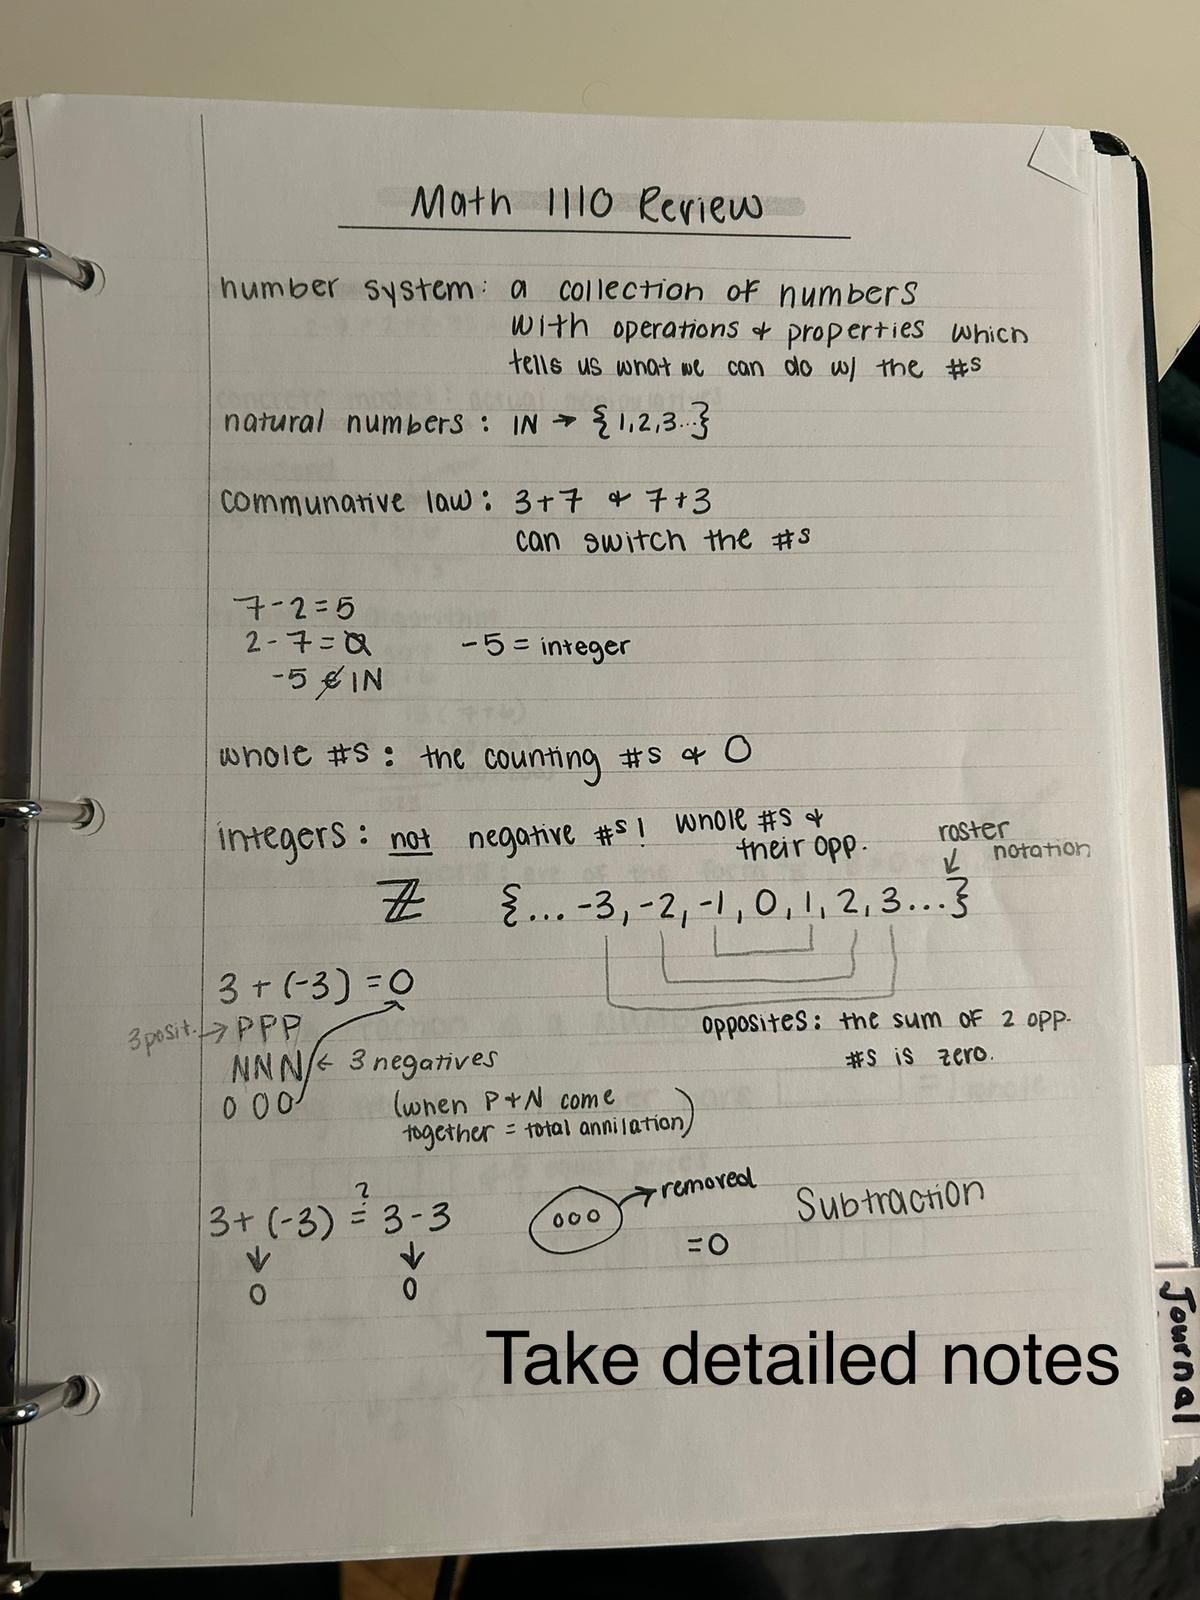 Math 1110 Review
number system: a collection of numbers
with operations & properties which
tells us what we can do w/ the #s
natural numbers: IN → {1,2,3...}
communative law: 3+7 & 7+3
can switch the #s
7-2=5
2-7=
-5 = integer
-5 ∉ IN
whole #s: the counting #s & 0
integers: not negative #s! whole #s &
their opp.
roster
notation
ℤ {... -3, -2, -1, 0, 1, 2, 3...}
3 + (-3) = 0
3 posit. → PPP
NNN ← 3 negatives
000
(when P+N come
together = total annilation)
opposites: the sum of 2 opp.
#s is zero.
3+ (-3) ≟ 3-3
0 0
000 → removed
=0
Subtraction
Take detailed notes
Journal